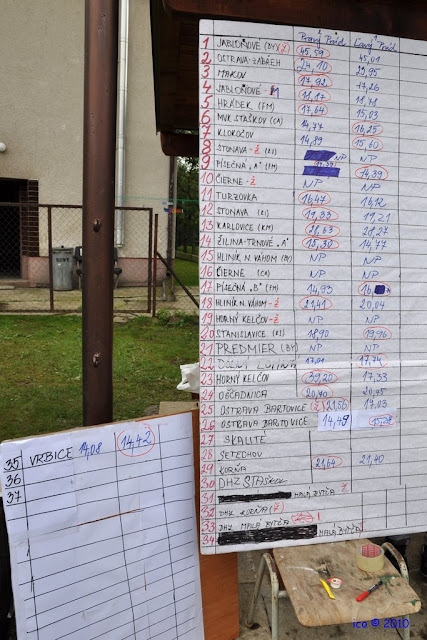 Pravý Prúd Ľavý Prúd
1 JABLOŇOVÉ (BY) Ž 45,59 45,01
2 OSTRAVA-ZÁBŘEH 24,10 23,95
3 MAKOV 17,92 17,26
4 JABLOŇOVÉ - M 11,17 11,71
5 HRÁDEK (FM) 17,64 15,03
6 MVK STAŠKOV (CA) 14,77 16,25
7 KLOKOČOV 14,89 15,60
8 STONAVA - Ž (KI) NP NP
9 PÍSEČNÁ „A" (FM) 14,39
10 ČIERNE - Ž NP NP
11 TURZOVKA 16,47 16,12
12 STONAVA (KI) 19,33 19,21
13 KARLOVICE (KM) 28,63 28,27
14 ŽILINA-TRNOVÉ „A" 15,30 14,77
15 HLINÍK N. VÁHOM (BY) NP NP
16 ČIERNE (CA) NP NP
17 PÍSEČNÁ „B" (FM) 14,93
18 HLINÍK N. VÁHOM - Ž 21,41 20,04
19 HORNÝ KELČOV - Ž NP NP
20 STANISLAVICE (KI) 18,90 19,96
21 PREDMIER (BY) NP NP
22 17,01 17,74
23 HORNÝ KELČOV 39,20 17,33
24 OŠČADNICA 20,70 20,45
25 OSTRAVA BARTOVICE (Ž) 21,56 17,03
26 OSTRAVA BARTOVICE 14,49
27 SKALITÉ
28 SETECHOV
29 KORŇA 21,64 21,40
30 DHZ STAŠKOV
31 MALÁ BYTČA Ž
32 DHZ KORŇA (Ž)
33 DHZ MALÁ BYTČA
34 MALÁ BYTČA
35 VRBICE 14,08 14,42
36
37
ico © 2010